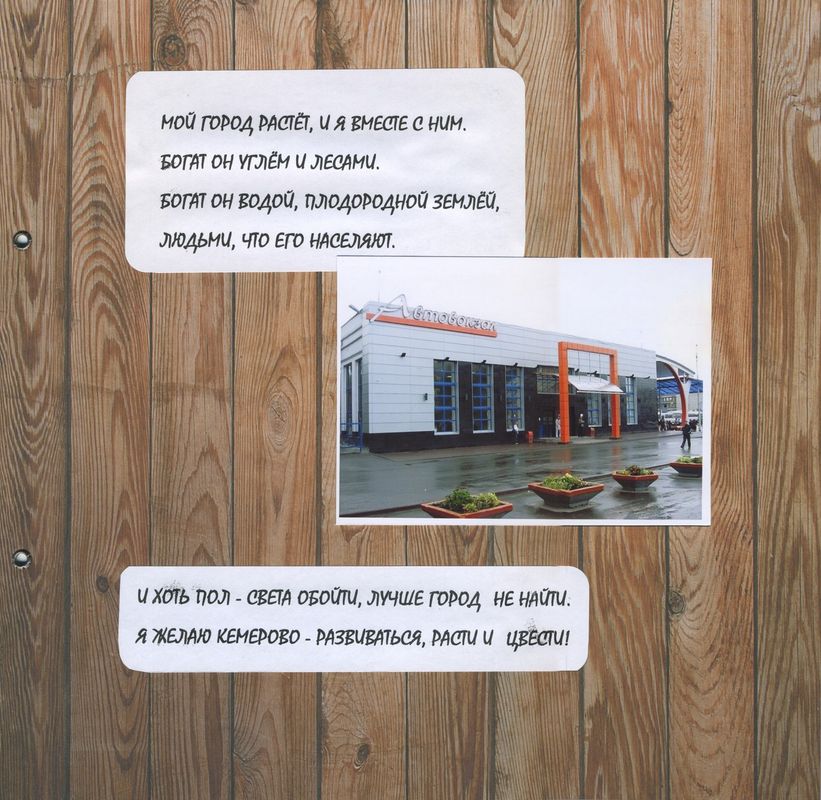 МОЙ ГОРОД РАСТЁТ, И Я ВМЕСТЕ С НИМ.
БОГАТ ОН УГЛЁМ И ЛЕСАМИ.
БОГАТ ОН ВОДОЙ, ПЛОДОРОДНОЙ ЗЕМЛЁЙ,
ЛЮДЬМИ, ЧТО ЕГО НАСЕЛЯЮТ.
Автовокзал
И ХОТЬ ПОЛ - СВЕТА ОБОЙТИ, ЛУЧШЕ ГОРОД НЕ НАЙТИ.
Я ЖЕЛАЮ КЕМЕРОВО - РАЗВИВАТЬСЯ, РАСТИ И ЦВЕСТИ!